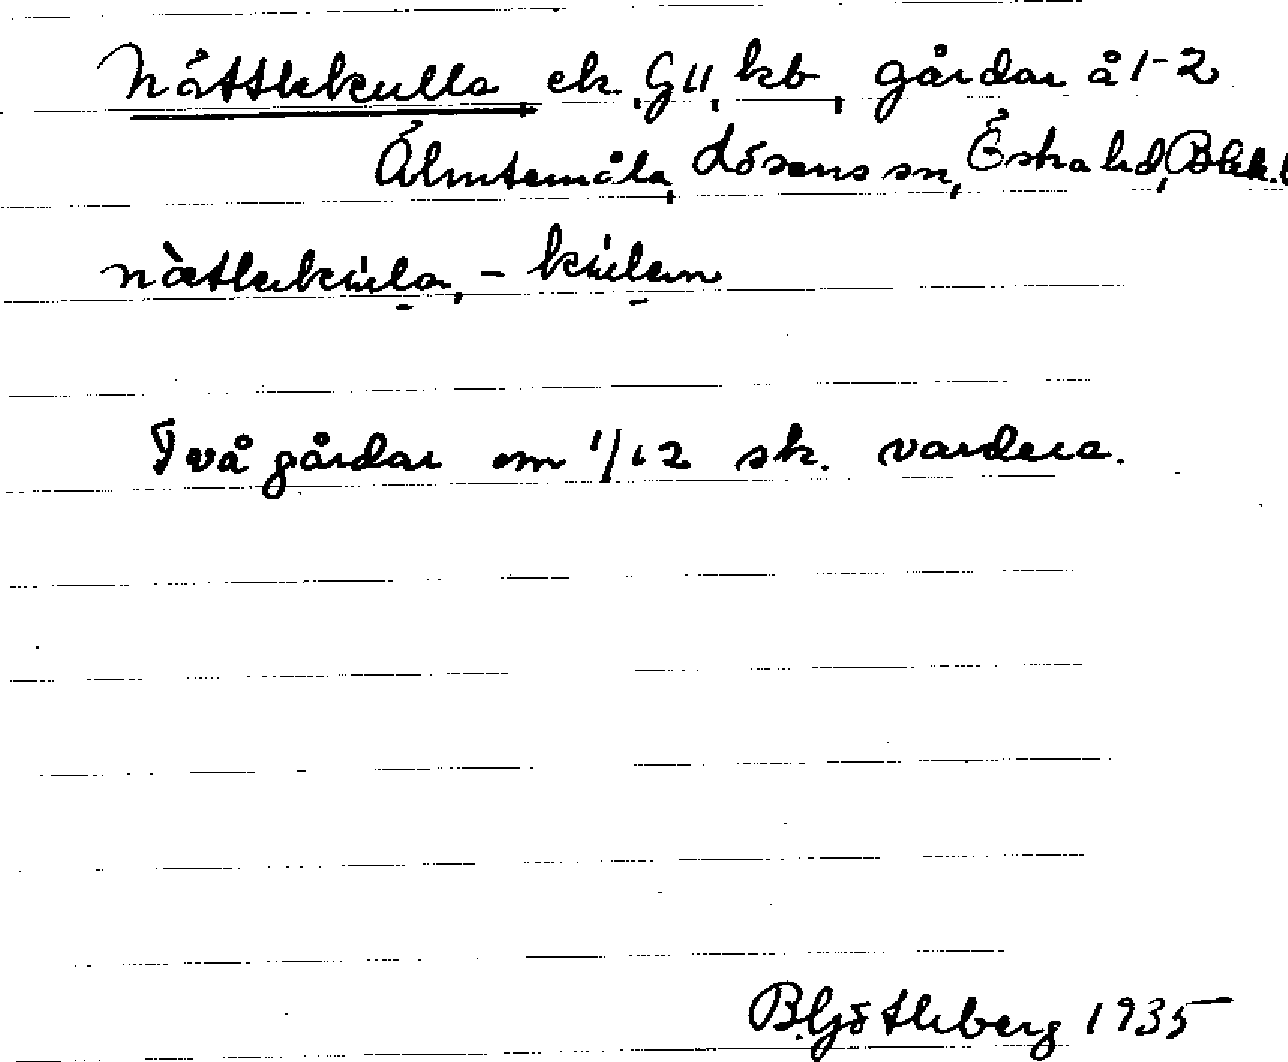 Nättlekulla, ek, GII, kb, gårdar å 1-2
Älmtamåla, Lösens sn, Östra hd, Blek.
nätlekula, - kulan
Två gårdar om 1/12 sk. vardera.
B. Götleberg 1935